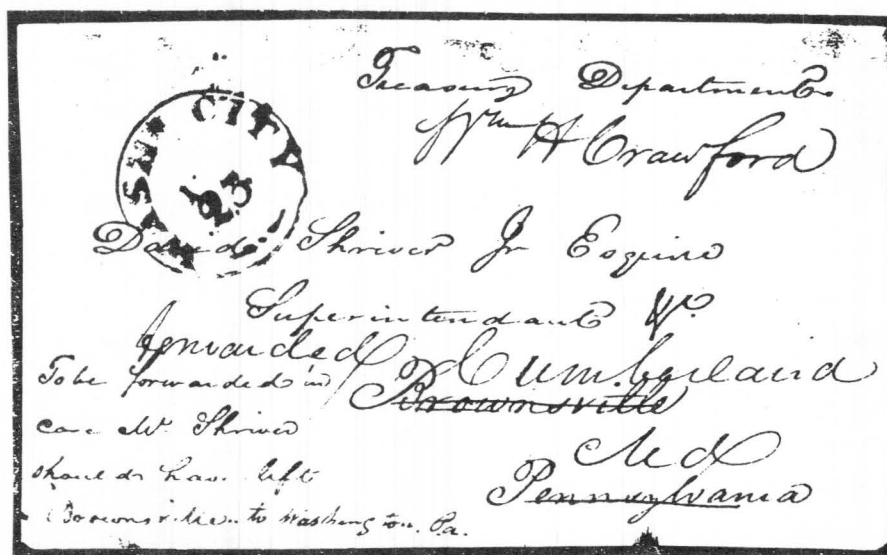 Treasury Department
Wm H Crawford
WASH. CITY
23
David Shriver Jr Esquire
Superintendant W.
forwarded Cumberland
Brownsville
Md
Pennsylvania
To be forwarded in
case Mr. Shriver
should have left
Brownsville to Washington. Pa.